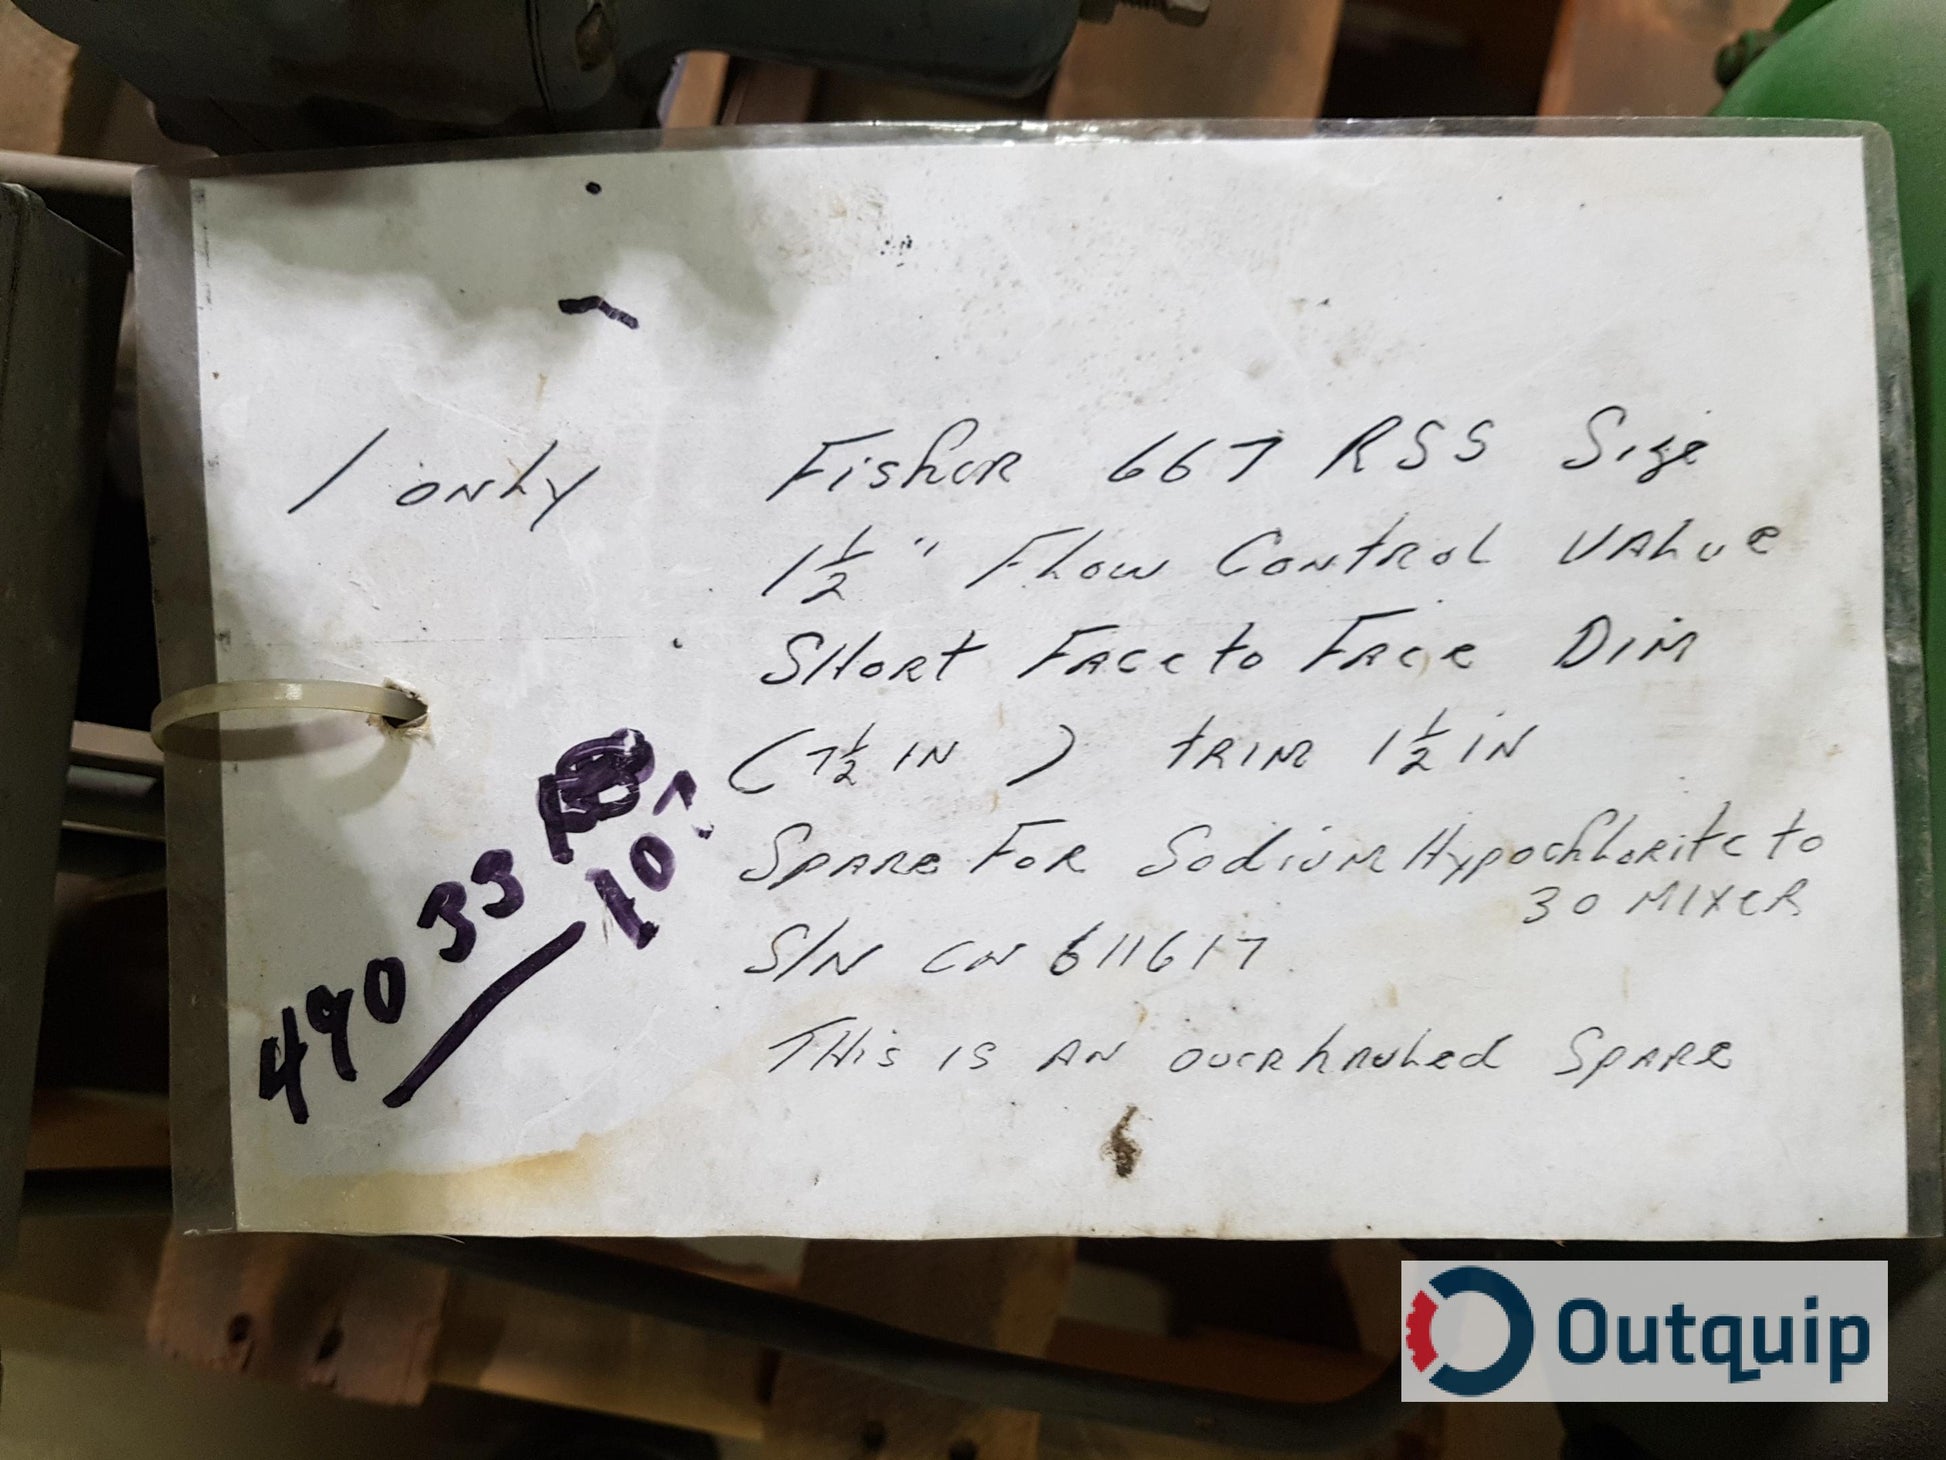 1 only Fisher 667 RSS Size
1 1/2" Flow Control Valve
Short Face to Face Dim
(7 1/2 IN ) trim 1 1/2 IN
Spare For Sodium Hypochlorite to
30 MIXER
S/N CN 611617
This is an overhauled Spare
490 33
10
Outquip